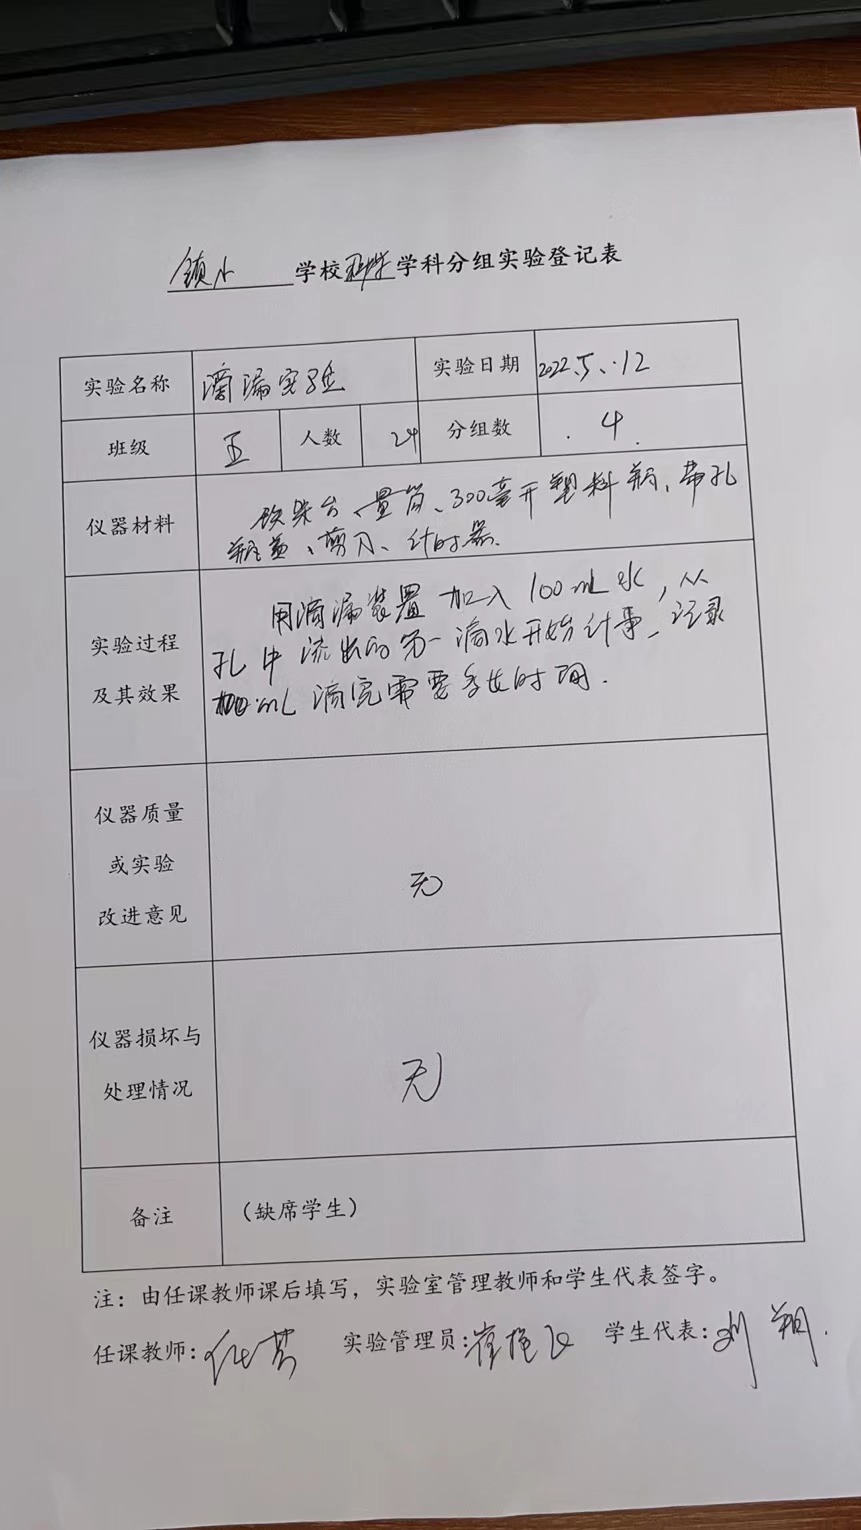 镇小 学校科学学科分组实验登记表
实验名称 滴漏实验 实验日期 2022.5.12
班级 五 人数 24 分组数 4
仪器材料
铁架台、量筒、300毫升塑料瓶、带孔
瓶盖、剪刀、计时器.
实验过程
及其效果
用滴漏装置加入100mL水,从
孔中流出的第一滴水开始计事,记录
100mL滴完需要多长时间.
仪器质量
或实验
改进意见
无
仪器损坏与
处理情况
无
备注 (缺席学生)
注:由任课教师课后填写,实验室管理教师和学生代表签字。
任课教师: 实验管理员:崔艳 学生代表:刘翔.